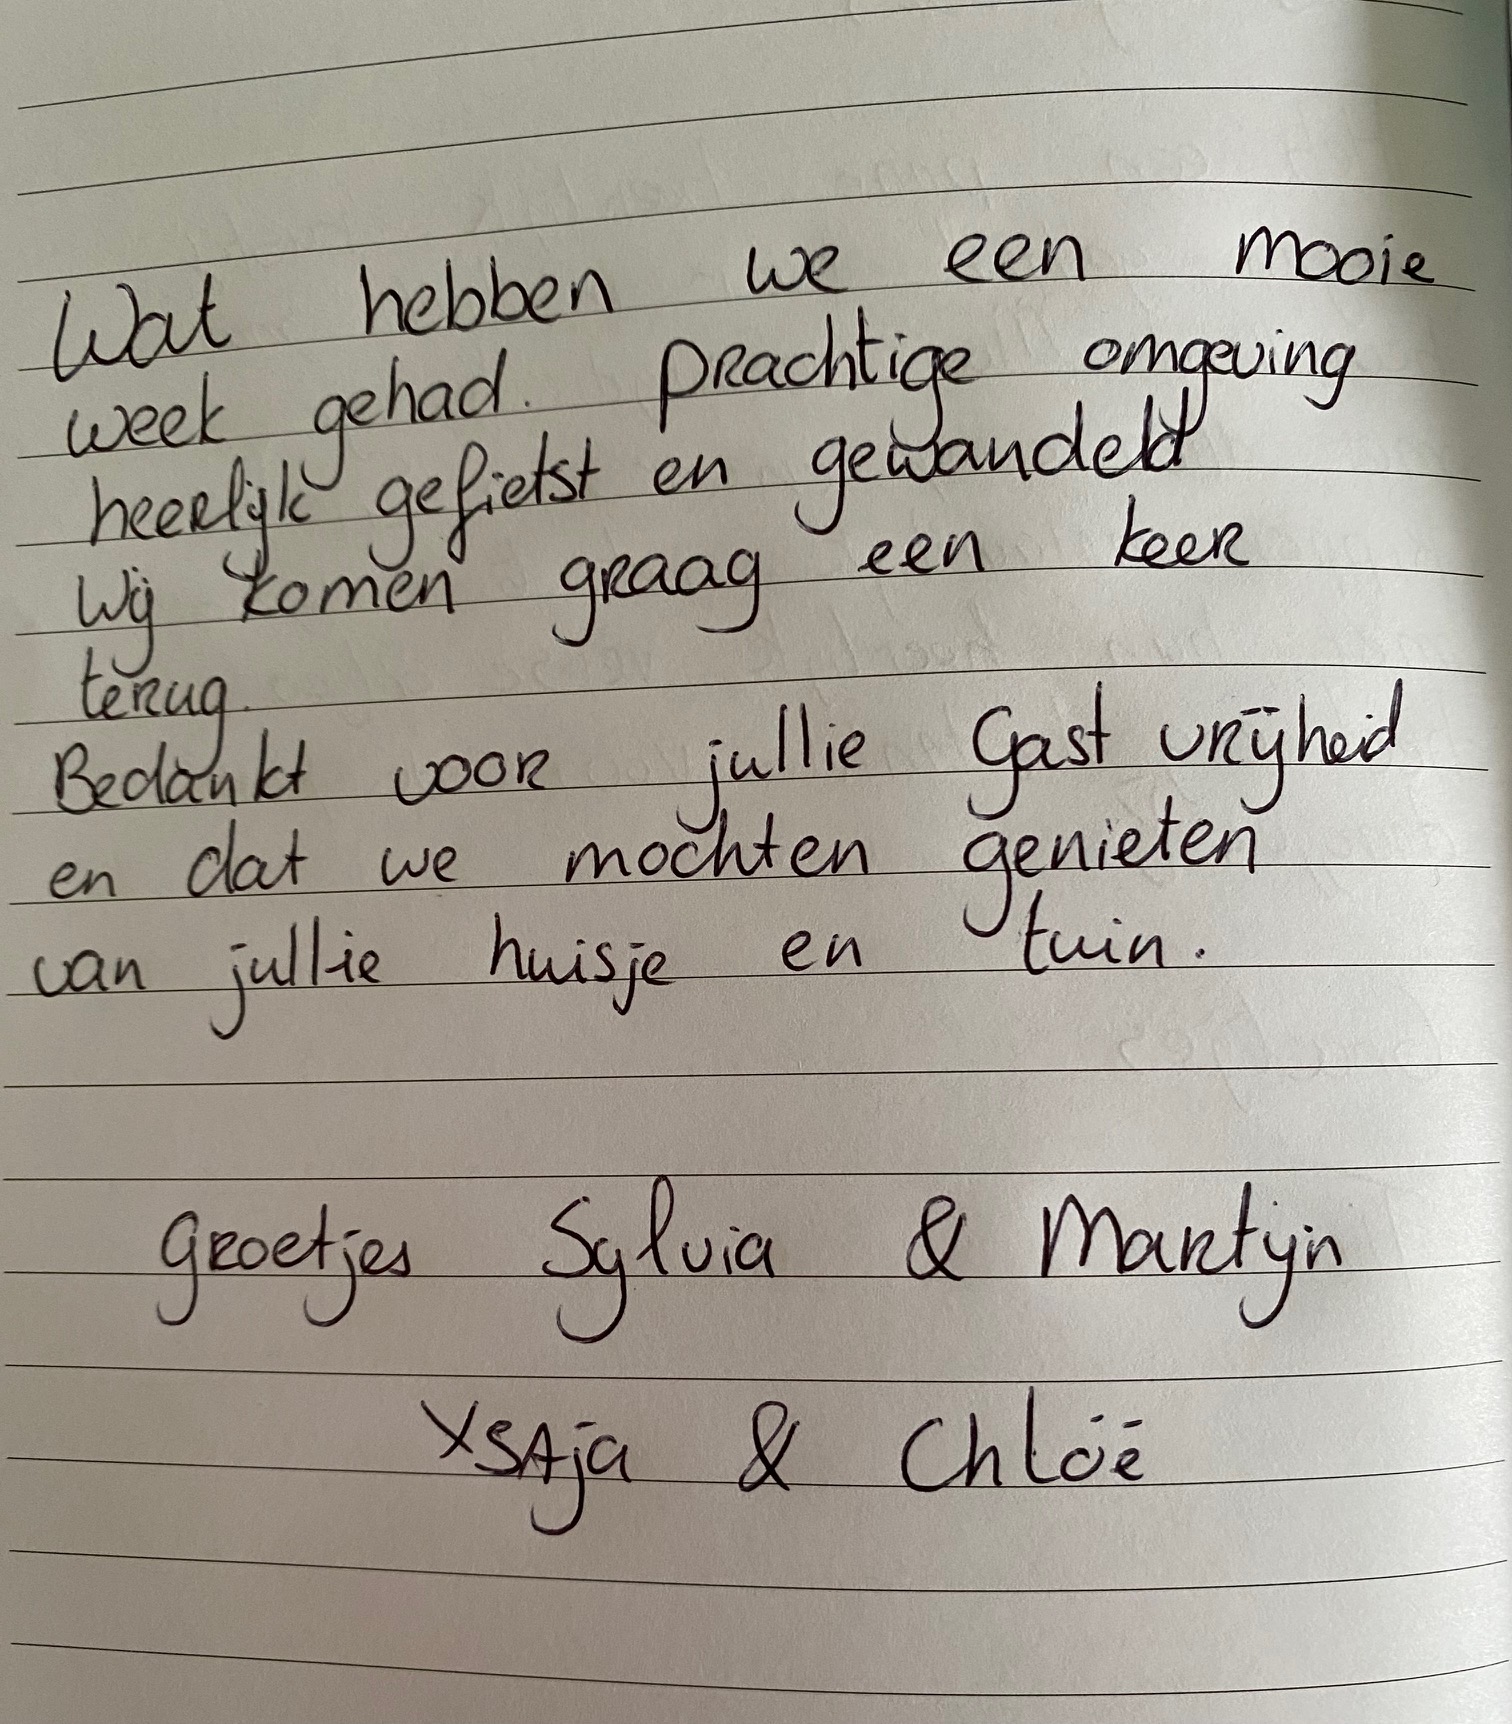 Wat hebben we een mooie
week gehad. prachtige omgeving
heerlijk gefietst en gewandeld
Wij komen graag een keer
terug.
Bedankt voor jullie Gast vrijheid
en dat we mochten genieten
van jullie huisje en tuin.
groetjes Sylvia & Martijn
YSAja & Chlöë